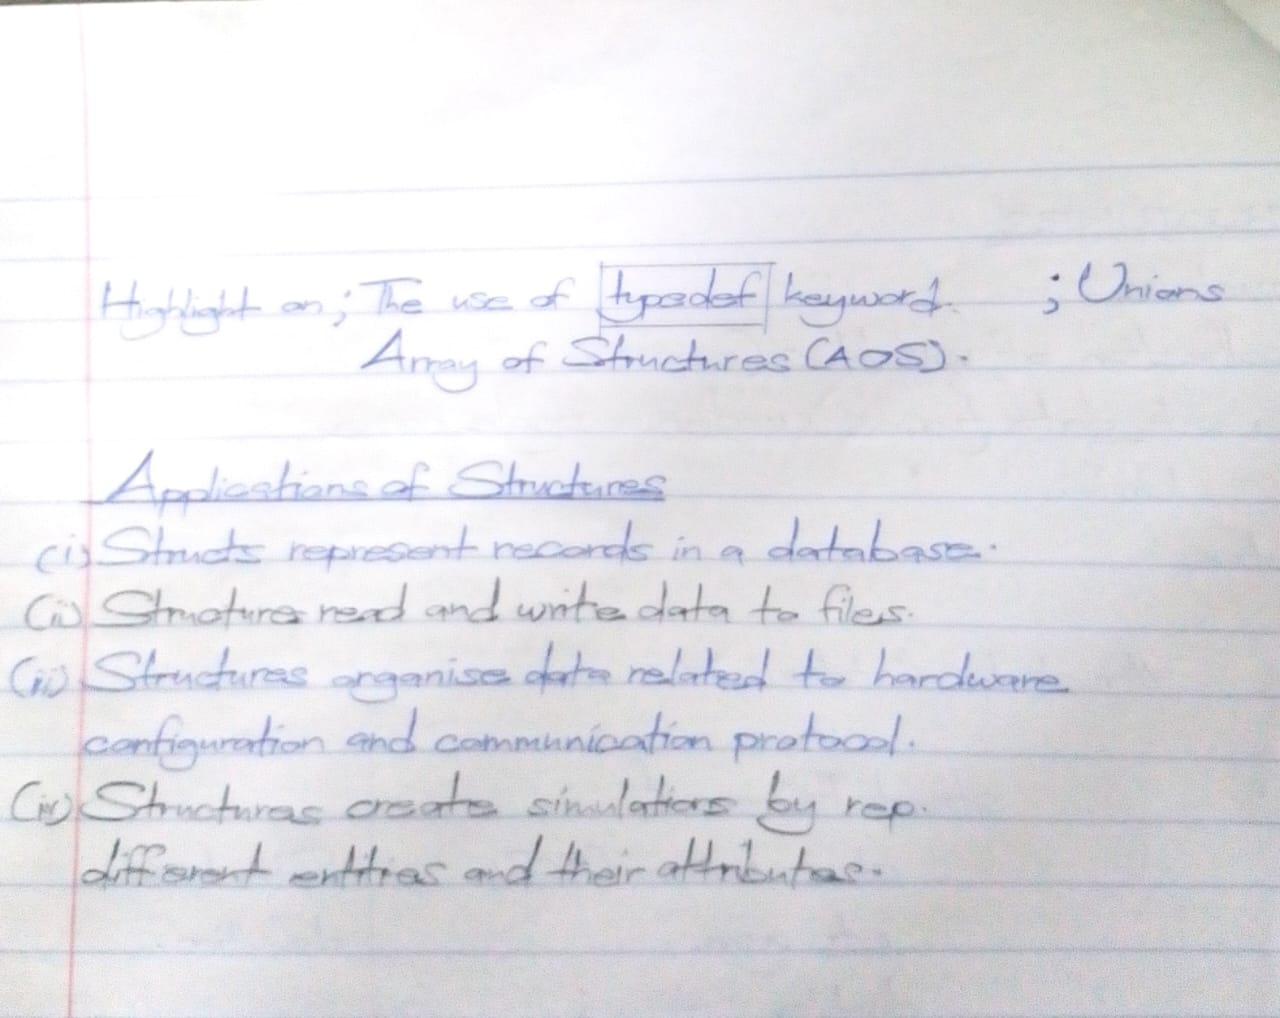 Highlight on; The use of typedef keyword. ; Unions
Array of Structures (AOS).
Applications of Structures
(i) Structs represent records in a database.
(ii) Structures read and write data to files.
(iii) Structures organise data related to hardware
configuration and communication protocol.
(iv) Structures create simulations by rep.
different entities and their attributes.